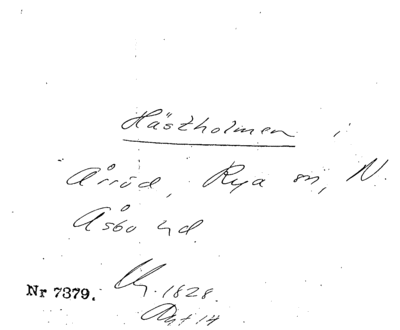 Hästholmen i
Årröd, Rya sn, N.
Åsbo hd.
Nr 7379. 1828.
Akt 14